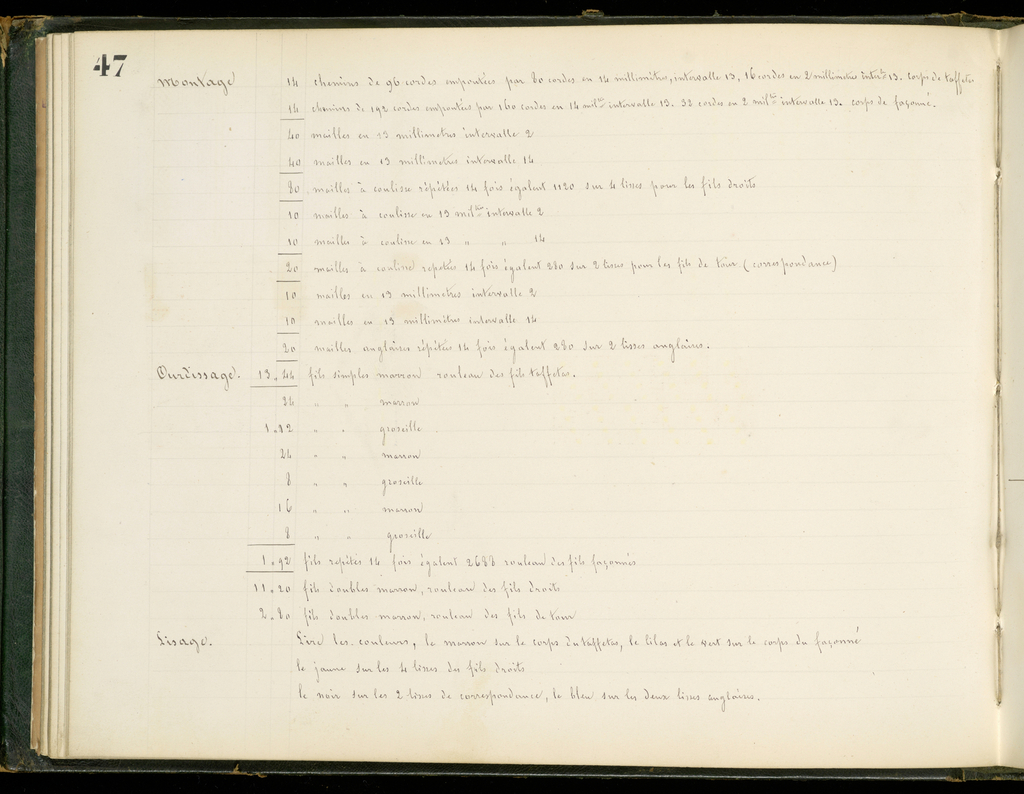 47
Montage 14 chemins de 96 cordes empoutées par 80 cordes en 14 millimètres, intervalle 13, 16 cordes en 2 millimetres inter^le 13. corps de taffetas
14 chemins de 192 cordes empoutées par 160 cordes en 14 mil^tres intervalle 13. 32 cordes en 2 mil^tres intervalle 13. corps de façonné.
40 mailles en 13 millimetres intervalle 2
40 mailles en 13 millimetres intervalle 14
80 mailles à coulisse répétées 14 fois égalent 1120 sur 4 lisses pour les fils droits
10 mailles à coulisse en 13 mil^tres intervalle 2
10 mailles à coulisse en 13 " " 14
20 mailles à coulisse repetées 14 fois égalent 280 sur 2 lisses pour les fils de tour (correspondance)
10 mailles en 13 millimetres intervalle 2
10 mailles en 13 millimètres intervalle 14
20 mailles anglaises répétées 14 fois égalent 280 sur 2 lisses anglaises.
Ourdissage. 13.44 fils simples marron rouleau des fils taffetas.
34 " " marron
1.02 " " groseille
24 " " marron
8 " " groseille
16 " " marron
8 " " groseille
1.92 fils repétés 14 fois égalent 2688 rouleau des fils façonnés
11.20 fils doubles marron, rouleau des fils droits
2.80 fils doubles marron, rouleau des fils de tour
Lisage. Lire les couleurs, le marron sur le corps du taffetas, le lilas et le vert sur le corps du façonné
le jaune sur les 4 lisses des fils droits
le noir sur les 2 lisses de correspondance, le bleu sur les deux lisses anglaises.